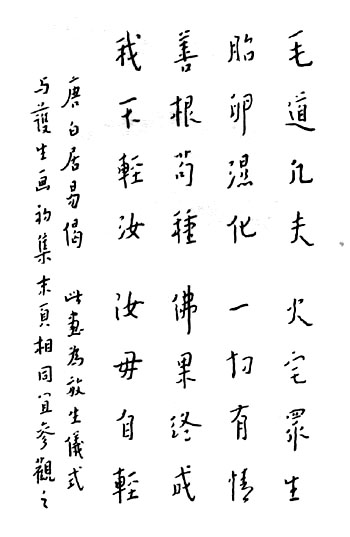 毛道凡夫 火宅眾生
胎卵濕化 一切有情
善根苟種 佛果終成
我不輕汝 汝毋自輕
唐白居易偈 此畫為放生儀式
与護生画初集末頁相同宜參觀之